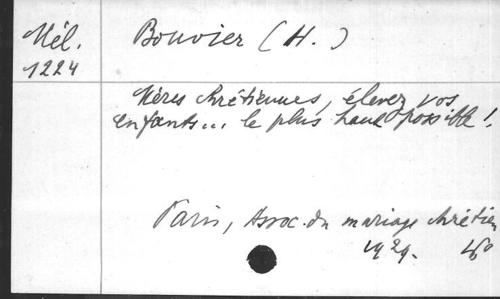 Mél.
1224
Bouvier (H.)
Mères chrétiennes, élevez vos
enfants... le plus haut possible !
Paris, Assoc. du mariage chrétien
1929. 16°